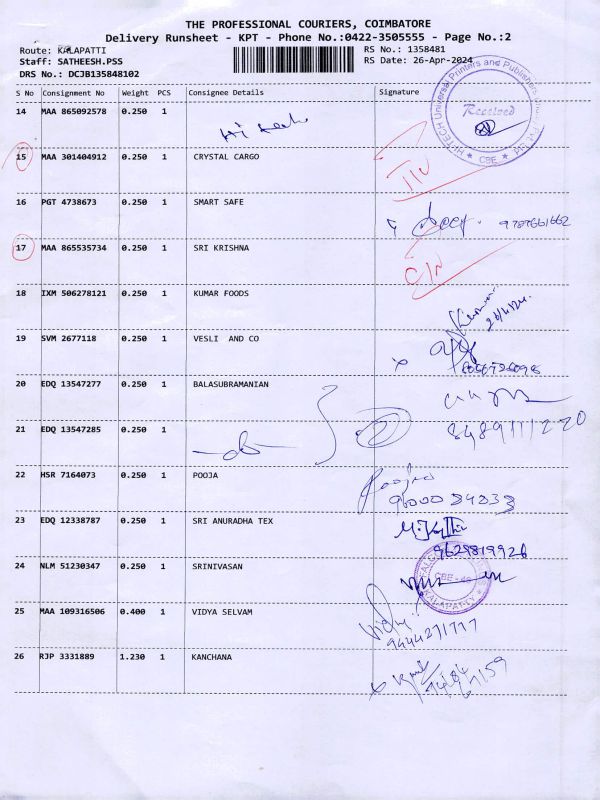 THE PROFESSIONAL COURIERS, COIMBATORE
Delivery Runsheet - KPT - Phone No.:0422-3505555 - Page No.:2
Route: KALAPATTI
RS No.: 1358481
Staff: SATHEESH.PSS
RS Date: 26-Apr-2024
DRS No.: DCJB135848102
S No Consignment No Weight PCS Consignee Details Signature
14 MAA 865092578 0.250 1
Received
15 MAA 301404912 0.250 1 CRYSTAL CARGO
16 PGT 4738673 0.250 1 SMART SAFE
9787661662
17 MAA 865535734 0.250 1 SRI KRISHNA
18 IXM 506278121 0.250 1 KUMAR FOODS
26/4/24
19 SVM 2677118 0.250 1 VESLI AND CO
20 EDQ 13547277 0.250 1 BALASUBRAMANIAN
21 EDQ 13547285 0.250 1
8489111220
22 HSR 7164073 0.250 1 POOJA
Pooja
23 EDQ 12338787 0.250 1 SRI ANURADHA TEX
9629819926
24 NLM 51230347 0.250 1 SRINIVASAN
KALAPATTY
25 MAA 109316506 0.400 1 VIDYA SELVAM
Vidhya
9444271777
26 RJP 3331889 1.230 1 KANCHANA